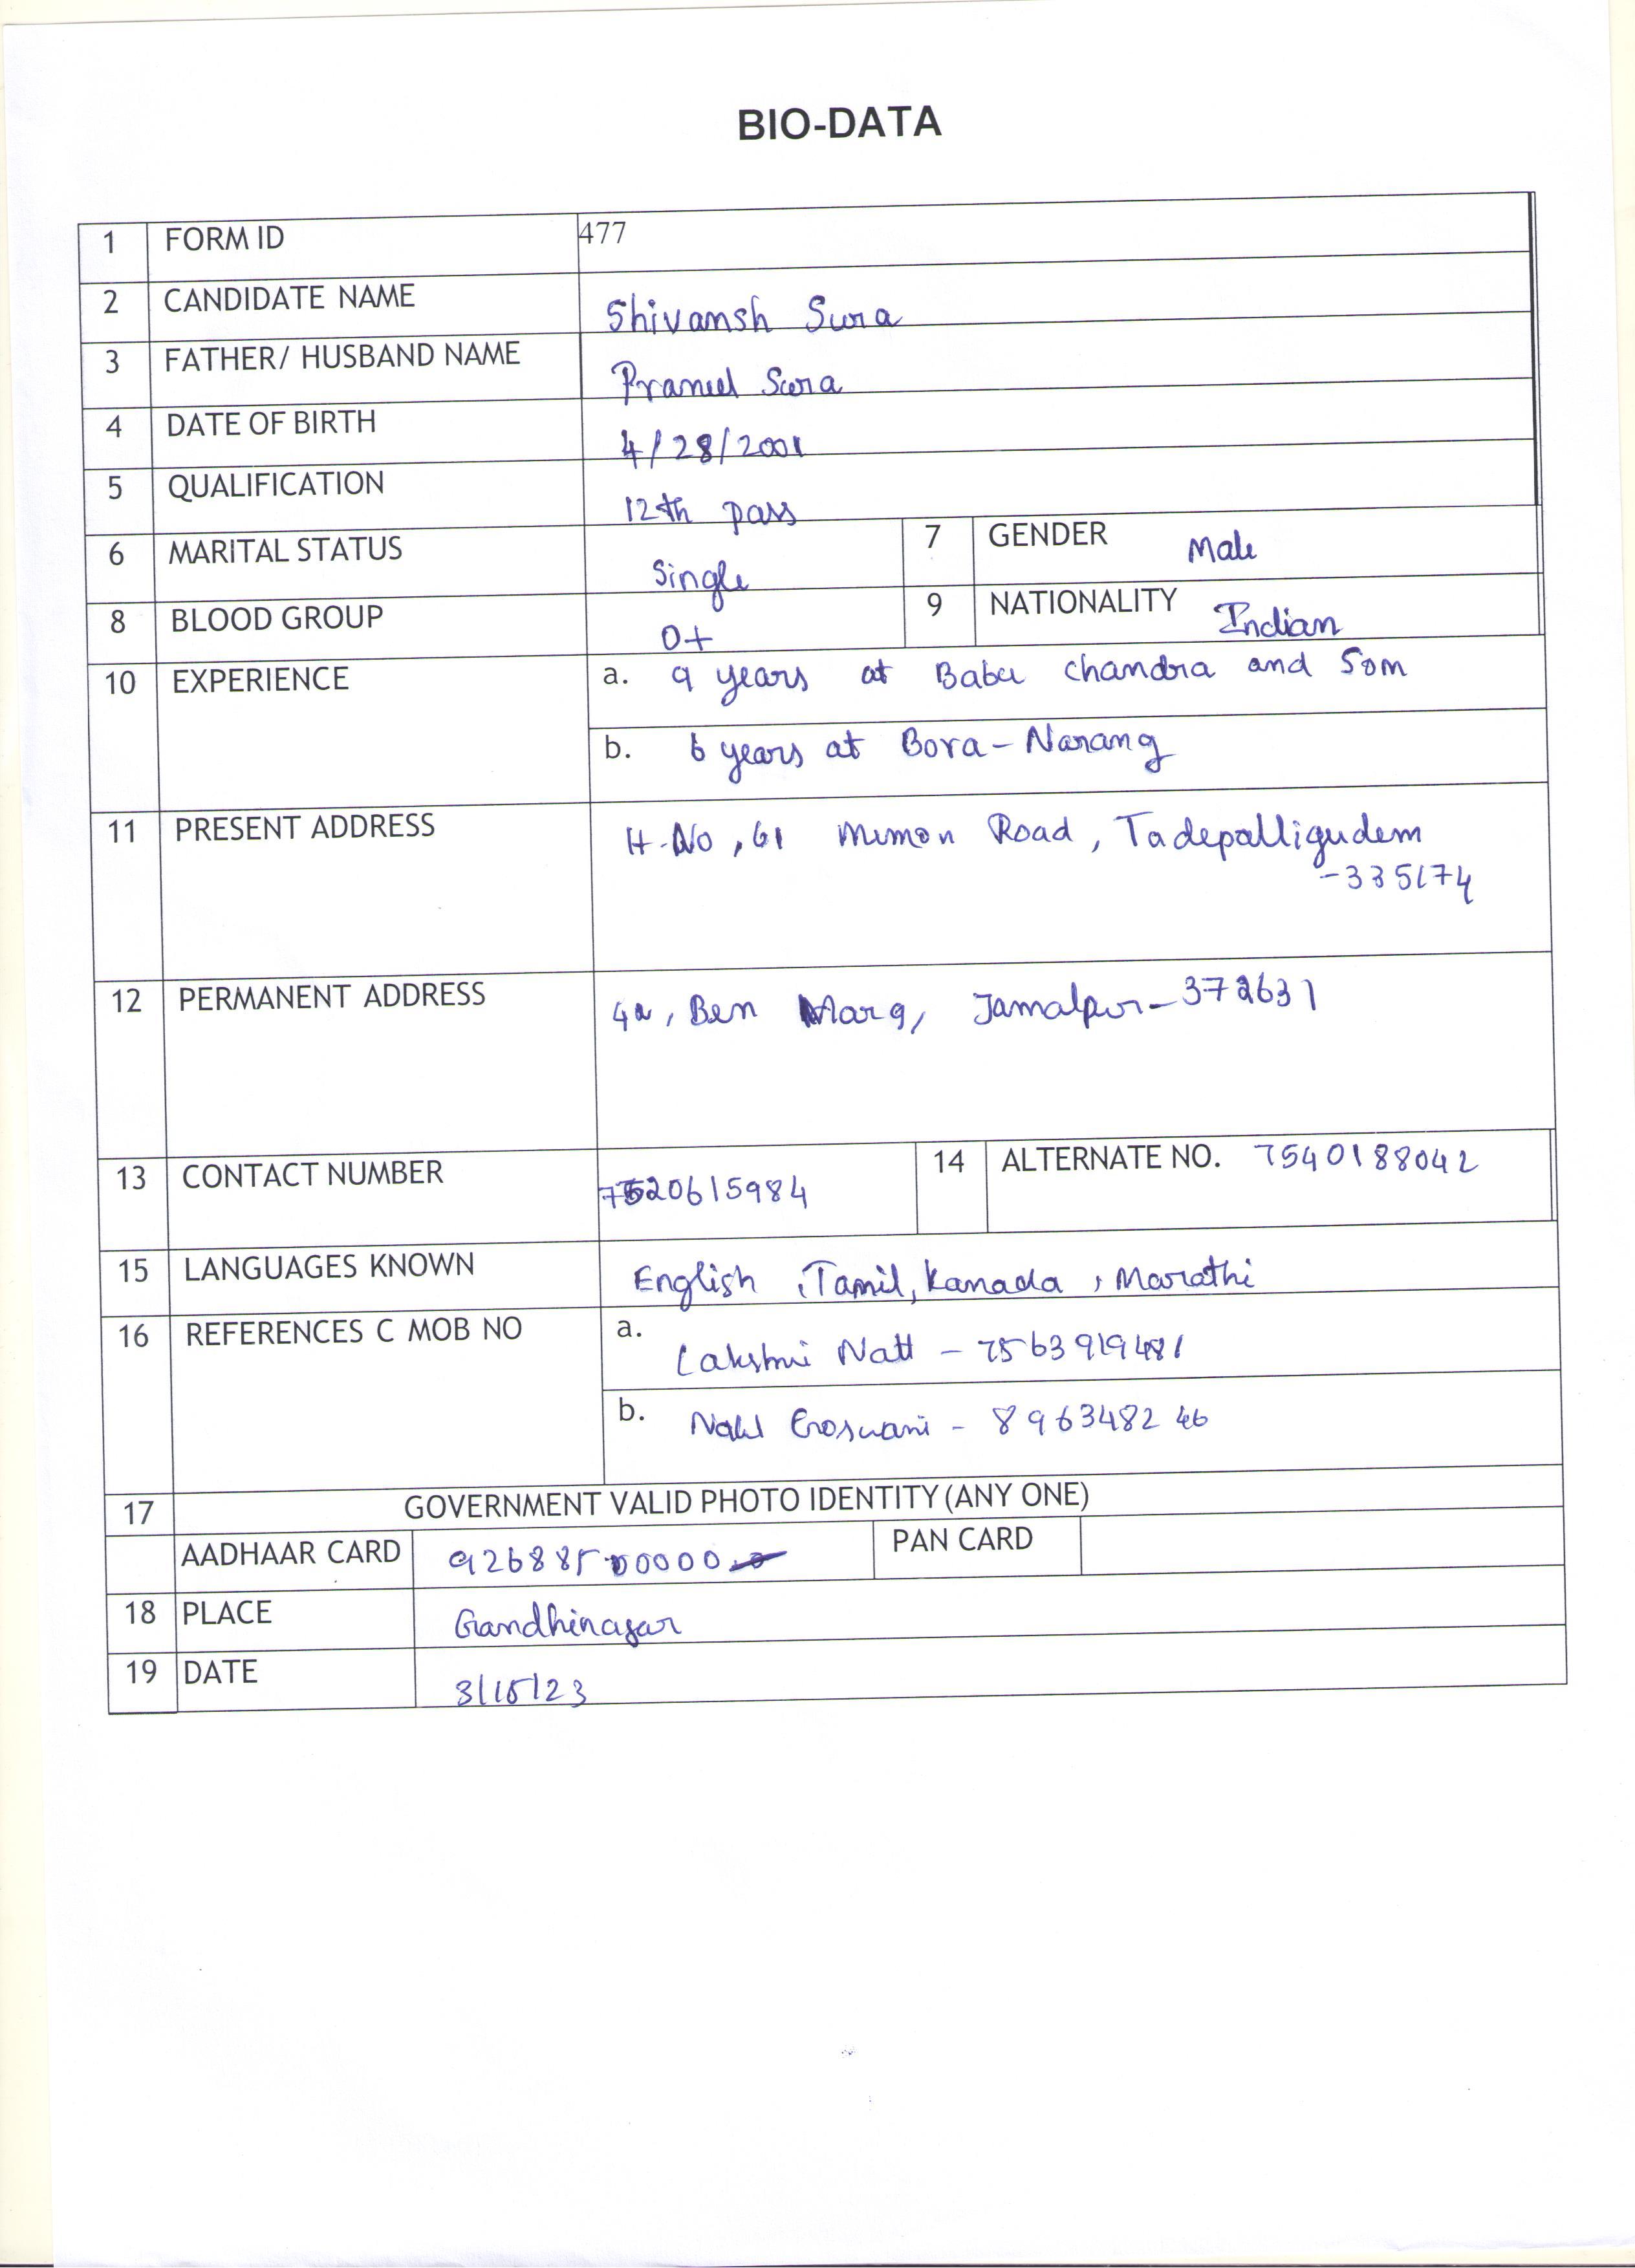 BIO-DATA
1 FORM ID 477
2 CANDIDATE NAME Shivansh Sura
3 FATHER/ HUSBAND NAME Praneel Sura
4 DATE OF BIRTH 4/28/2001
5 QUALIFICATION 12th pass
6 MARITAL STATUS Single 7 GENDER Male
8 BLOOD GROUP O+ 9 NATIONALITY Indian
10 EXPERIENCE a. 9 years at Babu chandra and Som
b. 6 years at Bora-Narang
11 PRESENT ADDRESS H.No, 61 Memon Road, Tadepalligudem
-335174
12 PERMANENT ADDRESS Ben Marg, Jamalpur-372631
13 CONTACT NUMBER 7520615984 14 ALTERNATE NO. 7540188042
15 LANGUAGES KNOWN English, Tamil, Kanada, Marathi
16 REFERENCES C MOB NO a.
Lakshmi Natt - 7563919481
b. Goswami - 8963482 46
17 GOVERNMENT VALID PHOTO IDENTITY (ANY ONE)
AADHAAR CARD 92688500000 PAN CARD
18 PLACE Gandhinagar
19 DATE 3/15/23